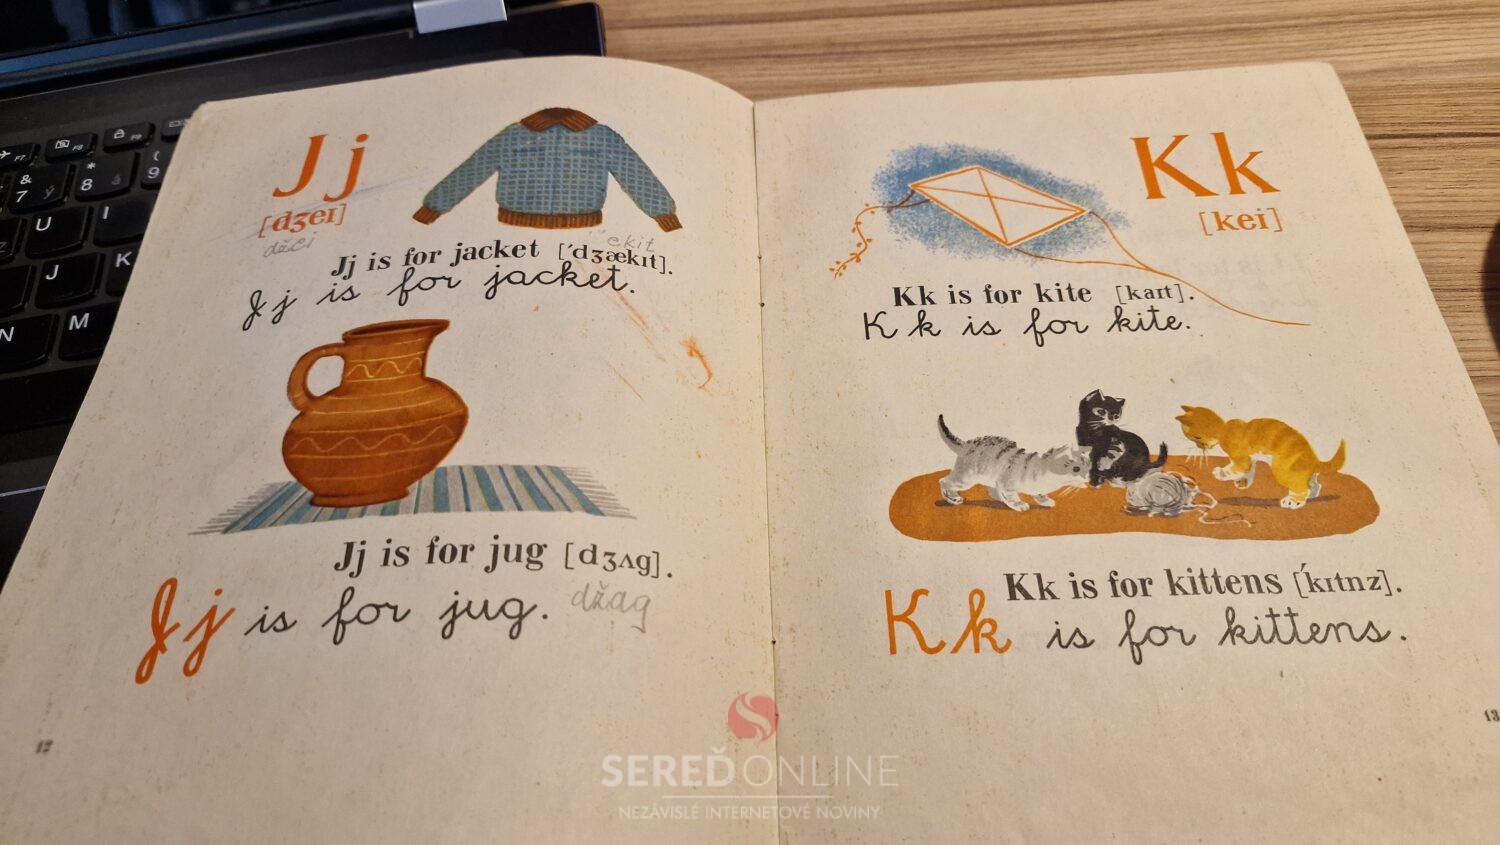 Jj
[dʒeɪ]
džei
ekit
Jj is for jacket [ˈdʒækıt].
Jj is for jacket.
Jj is for jug [dʒʌg].
Jj is for jug.
džag
12
Kk
[kei]
Kk is for kite [kaıt].
Kk is for kite.
Kk is for kittens [ˈkıtnz].
Kk is for kittens.
13
SEREĎONLINE
NEZÁVISLÉ INTERNETOVÉ NOVINY
F7
F8
F9
&
7
*
8
(
9
U
I
J
K
N
M